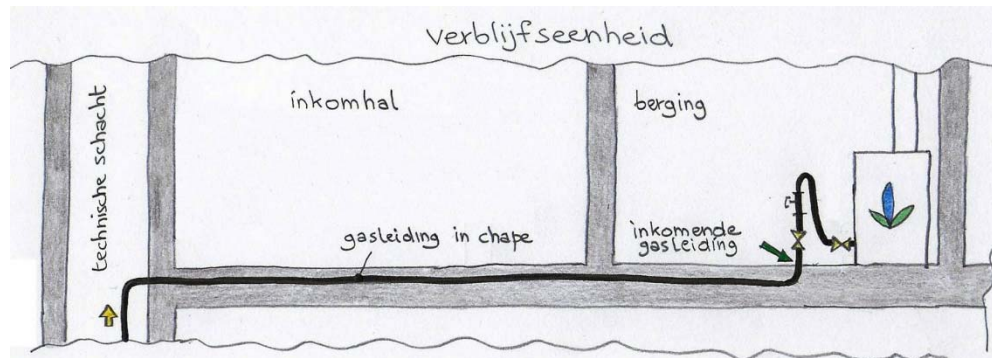 verblijfseenheid
technische schacht
inkomhal
berging
gasleiding in chape
inkomende
gasleiding